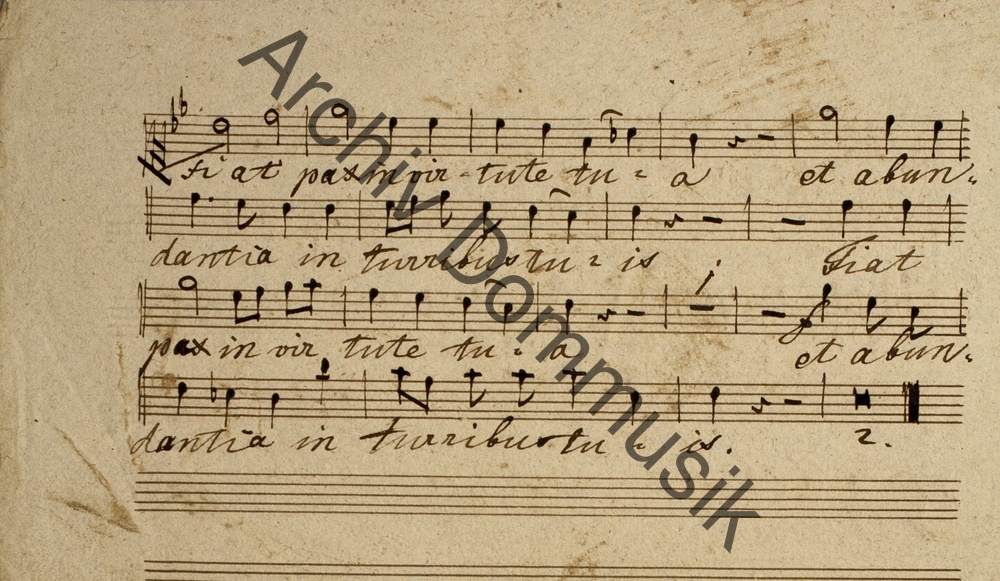 Fi at pax in vir - tute tu - a et abun-
dantia in turribus tu - is Fiat
pax in vir tute tu - a et abun-
dantia in turribus tu - is. 2.
Archiv Dommusik